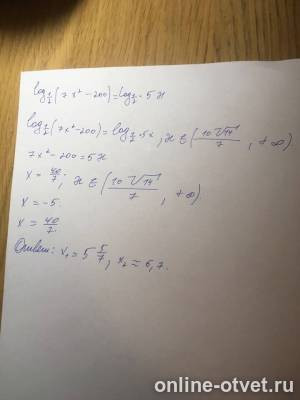 log½(7x²-200)=log½ · 5x
log½(7x²-200)=log½ · 5x, x ∈ (10√14/7, +∞)
7x²-200=5x
x = 40/7; x ∈ (10√14/7, +∞)
x = -5.
x = 40/7.
Ответ: x₁ = 5 5/7; x₂ ≈ 5,7.
online-otvet.ru